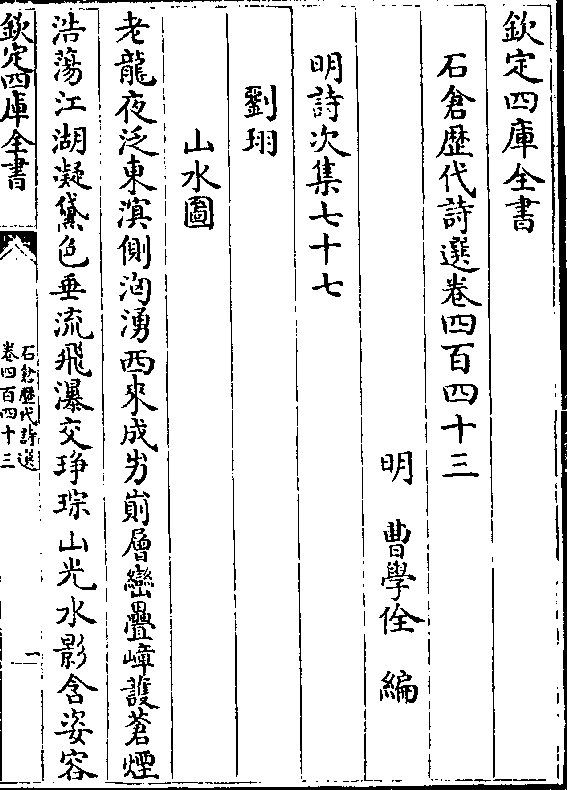 欽定四庫全書
石倉歷代詩選卷四百四十三
明 曹學佺 編
明詩次集七十七
劉珝
山水圖
老龍夜泛東溟側洶湧西來成岃崱層巒疊嶂護蒼煙
浩蕩江湖凝黛色垂流飛瀑交琤琮山光水影含姿容
欽定四庫全書
石倉歷代詩選
卷四百四十三
一